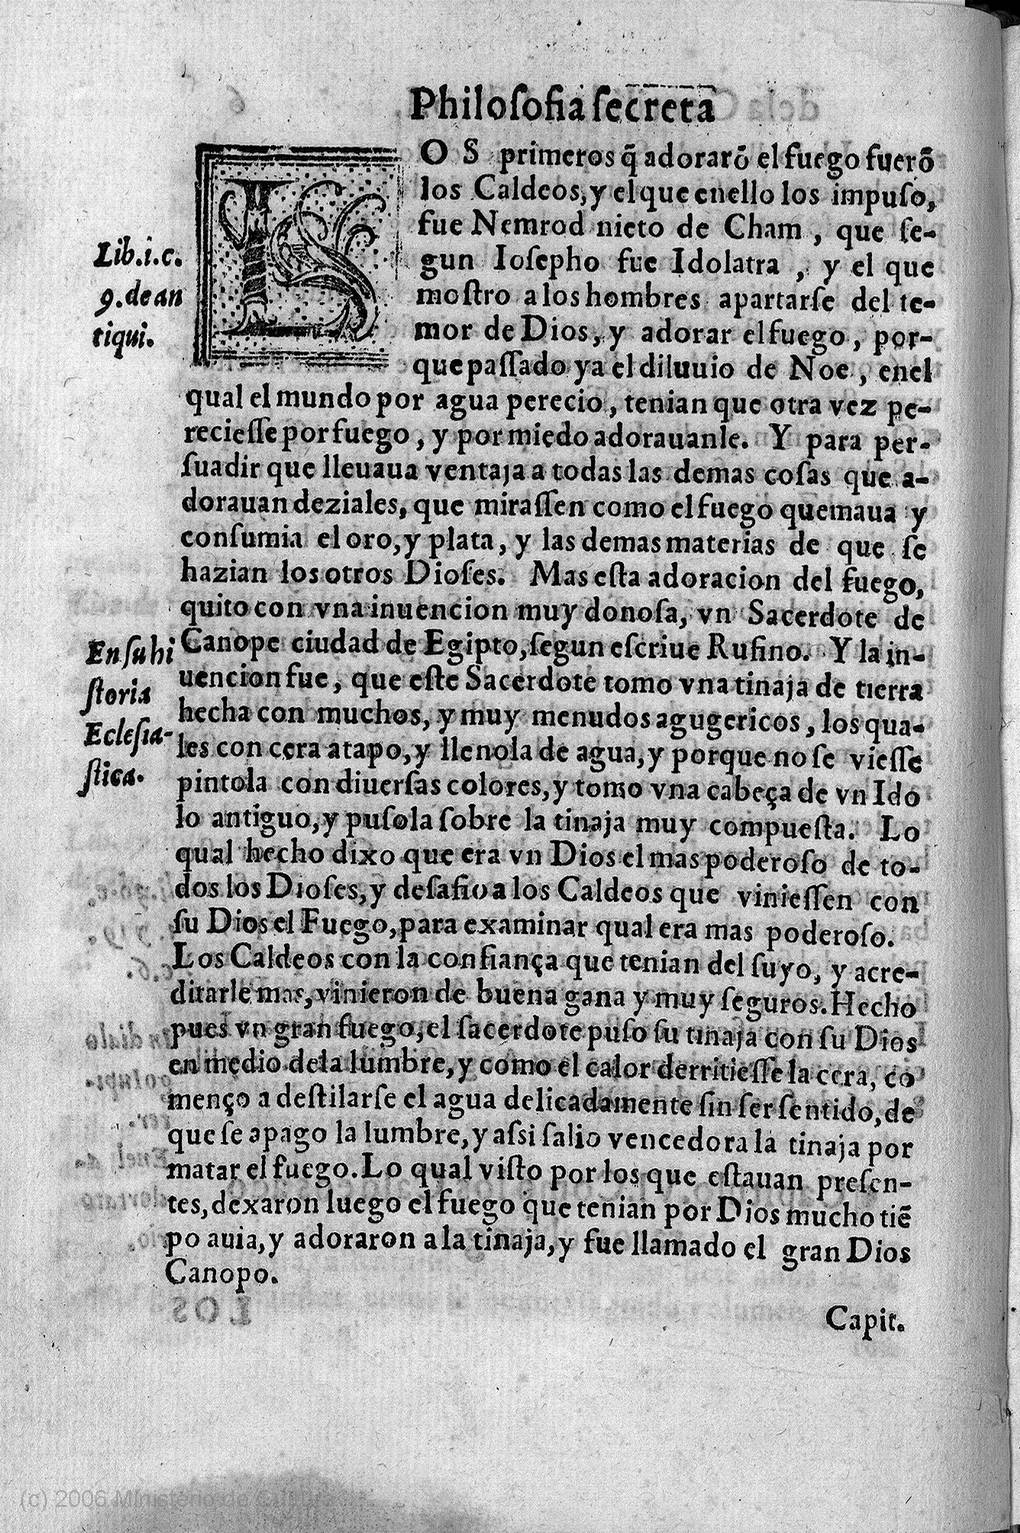 Philosofia secreta
LOS primeros q̃ adorarõ el fuego fuerõ
los Caldeos, y el que enello los impuso,
fue Nemrod nieto de Cham, que se-
gun Iosepho fue Idolatra, y el que
mostro a los hombres apartarse del te-
mor de Dios, y adorar el fuego, por-
que passado ya el diluuio de Noe, enel
qual el mundo por agua perecio, tenian que otra vez pe-
reciesse por fuego, y por miedo adorauanle. Y para per-
suadir que lleuaua ventaja a todas las demas cosas que a-
dorauan deziales, que mirassen como el fuego quemaua y
consumia el oro, y plata, y las demas materias de que se
hazian los otros Dioses. Mas esta adoracion del fuego,
quito con vna inuencion muy donosa, vn Sacerdote de
Canope ciudad de Egipto, segun escriue Rufino. Y la in-
uencion fue, que este Sacerdote tomo vna tinaja de tierra
hecha con muchos, y muy menudos agugericos, los qua-
les con cera atapo, y llenola de agua, y porque no se viesse
pintola con diuersas colores, y tomo vna cabeça de vn Ido
lo antiguo, y pusola sobre la tinaja muy compuesta. Lo
qual hecho dixo que era vn Dios el mas poderoso de to-
dos los Dioses, y desafio a los Caldeos que viniessen con
su Dios el Fuego, para examinar qual era mas poderoso.
Los Caldeos con la confiança que tenian del suyo, y acre-
ditarle mas, vinieron de buena gana y muy seguros. Hecho
pues vn gran fuego, el sacerdote puso su tinaja con su Dios
en medio dela lumbre, y como el calor derritiesse la cera, co
menço a destilarse el agua delicadamente sin ser sentido, de
que se apago la lumbre, y assi salio vencedora la tinaja por
matar el fuego. Lo qual visto por los que estauan presen-
tes, dexaron luego el fuego que tenian por Dios mucho tiẽ
po auia, y adoraron a la tinaja, y fue llamado el gran Dios
Canopo.
Capit.
Lib.i.c.
9.de an
tiqui.
En su hi
storia
Eclesia-
stica.
(c) 2006 Ministerio de Cultura